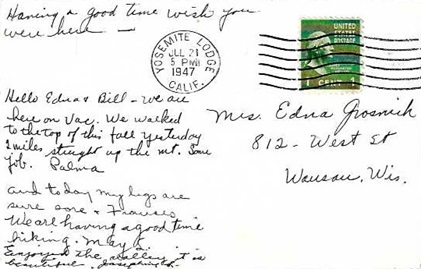 Having a good time wish you
were here —
YOSEMITE LODGE
JUL 21
5 PM
1947
CALIF.
UNITED
STATES
POSTAGE
1 CENT 1
Hello Edna & Bill – we are
here on Vac. We walked
to the top of this fall yesterday
2 miles straight up the mt. Some
job. Palma
and today my legs are
sure sore &
We are having a good time
hiking. May E.
Enjoyed the valley, it is
beautiful. Josephine
Mrs. Edna Grosnick
812 - West St
Wausau, Wis.